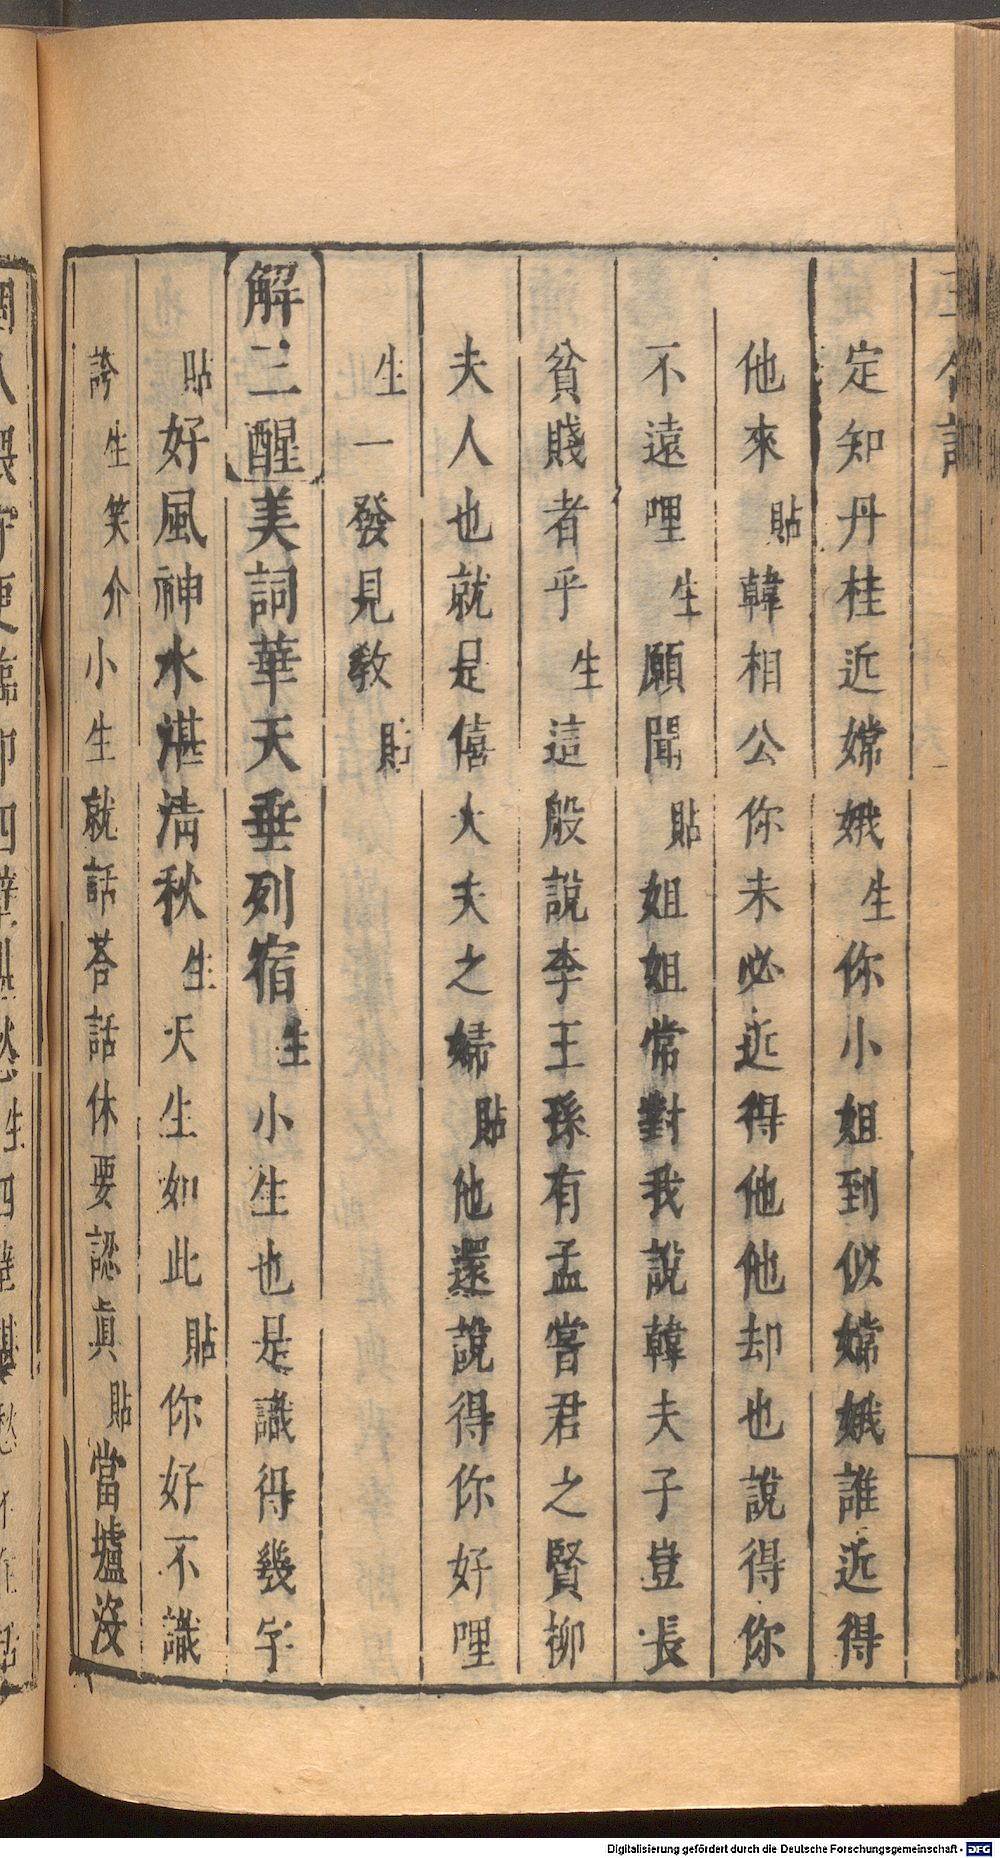 定知丹桂近嫦娥生你小姐到似嫦娥誰近得
他來貼韓相公你未必近得他他却也說得你
不遠哩生願聞貼姐姐常對我說韓夫子豈長
貧賤者乎生這般說李王孫有孟嘗君之賢柳
夫人也就是僖大夫之婦貼他還說得你好哩
生一發見教貼
解三酲美詞華天垂列宿生小生也是識得幾字
貼好風神水湛清秋生天生如此貼你好不識
誇生笑介小生就話荅話休要認眞貼當壚沒
Digitalisierung gefördert durch die Deutsche Forschungsgemeinschaft - DFG